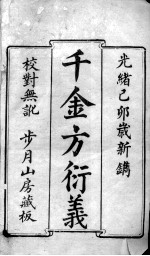 光緒己卯歲新鐫
千金方衍義
校對無訛
步月山房藏板